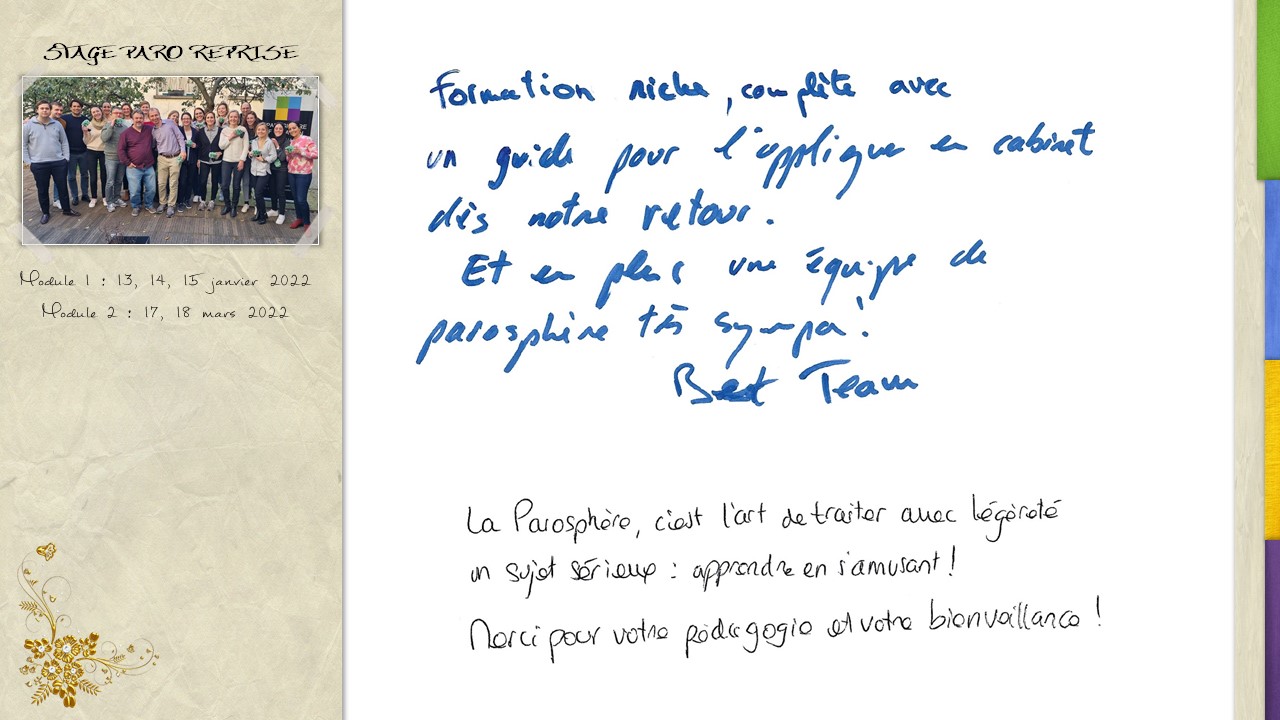 STAGE PARO REPRISE
Module 1 : 13, 14, 15 janvier 2022
Module 2 : 17, 18 mars 2022
Formation riche, complète avec
un guide pour l'appliquer en cabinet
dès notre retour.
Et en plus une équipe de
parosphère très sympa !
Best Team
La Parosphère, c'est l'art de traiter avec légèreté
un sujet sérieux : apprendre en s'amusant !
Merci pour votre pédagogie et votre bienveillance !